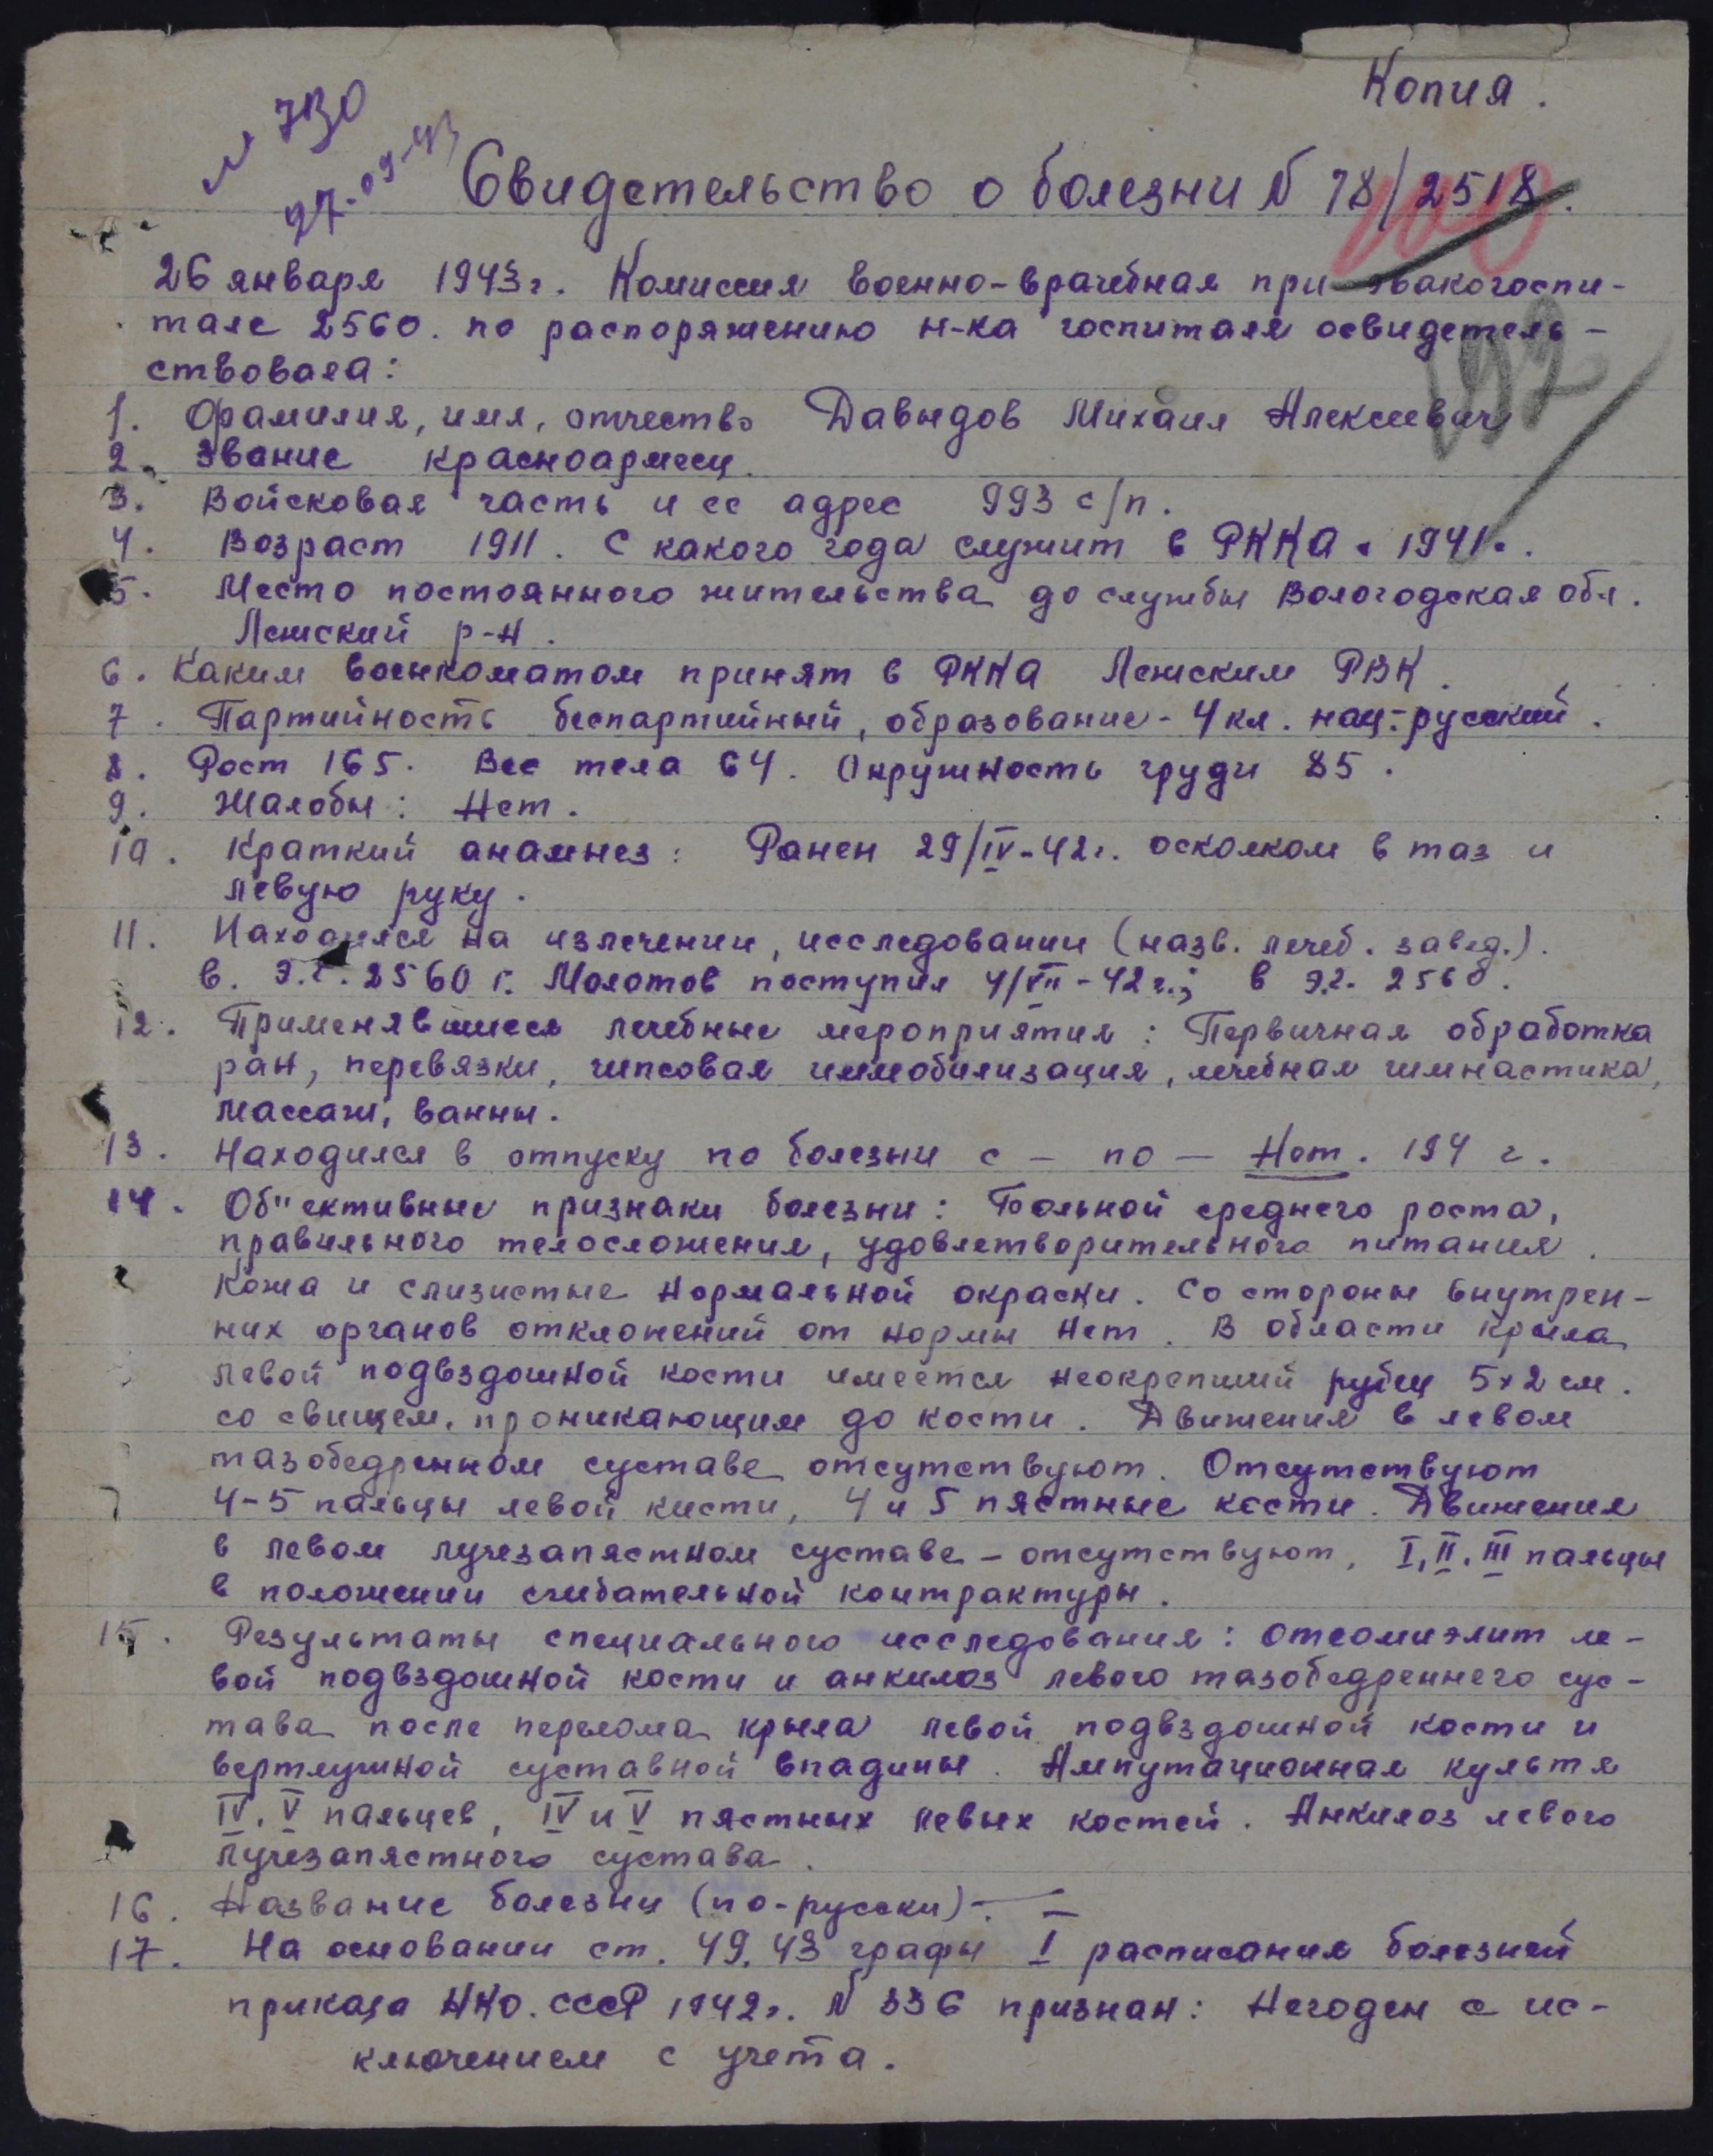 Копия.
№ 730
27-09-43
Свидетельство о болезни N 78/2518.
100
26 января 1943г. Комиссия военно-врачебная при эвакогоспи-
тале 2560. по распоряжению н-ка госпиталя освидетель-
ствовала:
192
1. Фамилия, имя, отчество Давыдов Михаил Алексеевич
2. Звание красноармеец.
3. Войсковая часть и ее адрес 993 с/п.
4. Возраст 1911. С какого года служит в РККА с 1941г.
5. Место постоянного жительства до службы Вологодская обл.
Лежский р-н.
6. Каким военкоматом принят в РККА Лежским РВК.
7. Партийность беспартийный, образование - 4 кл. нац.-русский.
8. Рост 165. Вес тела 64. Окружность груди 85.
9. Жалобы: Нет.
10. Краткий анамнез: Ранен 29/IV-42г. осколком в таз и
левую руку.
11. Находился на излечении, исследовании (назв. лечеб. завед.).
в. Э.Г. 2560 г. Молотов поступил 4/VII-42г.; в э.г. 2560.
12. Применявшиеся лечебные мероприятия: Первичная обработка
ран, перевязки, гипсовая иммобилизация, лечебная гимнастика,
массаж, ванны.
13. Находился в отпуску по болезни с - по - Нет. 194 г.
14. Об"ективные признаки болезни: Больной среднего роста,
правильного телосложения, удовлетворительного питания.
Кожа и слизистые нормальной окраски. Со стороны внутрен-
них органов отклонений от нормы нет. В области крыла
левой подвздошной кости имеется неокрепший рубец 5х2 см.
со свищем, проникающим до кости. Движения в левом
тазобедренном суставе отсутствуют. Отсутствуют
4-5 пальцы левой кисти, 4 и 5 пястные кости. Движения
в левом лучезапястном суставе - отсутствуют, I, II, III пальцы
в положении сгибательной контрактуры.
15. Результаты специального исследования: отеомиэлит ле-
вой подвздошной кости и анкилоз левого тазобедреннего сус-
тава после перелома крыла левой подвздошной кости и
вертлужной суставной впадины. Ампутационная культя
IV, V пальцев, IV и V пястных левых костей. Анкилоз левого
лучезапястного сустава.
16. Название болезни (по-русски) -
17. На основании ст. 49, 43 графы I расписания болезней
приказа НКО. СССР 1942г. N 336 признан: Негоден с ис-
ключением с учета.